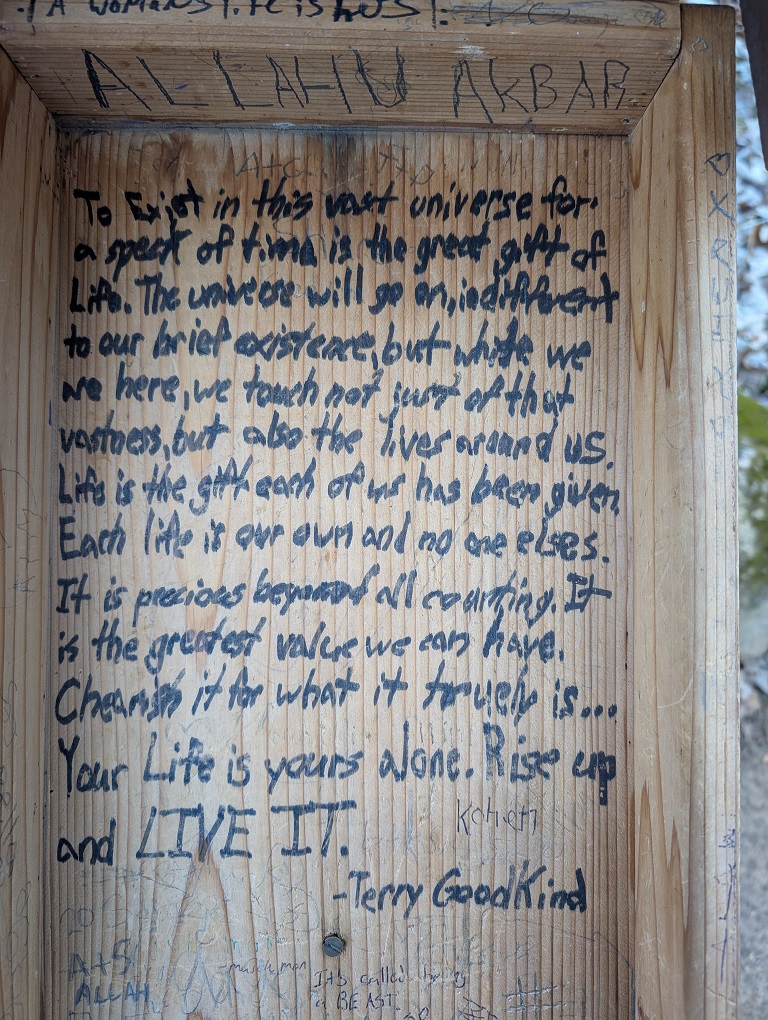 A WOMANS life is hers!
ALLAHU AKBAR
A+C
To Exist in this vast universe for
a speck of time is the great gift of
Life. The universe will go on, indifferent
to our brief existence, but while we
are here, we touch not just of that
vastness, but also the lives around us.
Life is the gift each of us has been given.
Each life is our own and no one elses.
It is precious beyond all counting. It
is the greatest value we can have.
Chearish it for what it truely is...
Your Life is yours alone. Rise up
and LIVE IT.
-Terry GoodKind
A+S
ALLAH
It's called being
a BEAST.